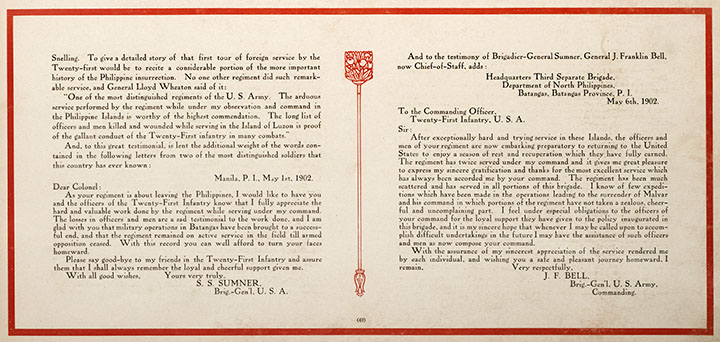 Snelling. To give a detailed story of that first tour of foreign service by the
Twenty-first would be to recite a considerable portion of the more important
history of the Philippine insurrection. No one other regiment did such remark-
able service, and General Lloyd Wheaton said of it:
"One of the most distinguished regiments of the U. S. Army. The arduous
service performed by the regiment while under my observation and command in
the Philippine Islands is worthy of the highest commendation. The long list of
officers and men killed and wounded while serving in the Island of Luzon is proof
of the gallant conduct of the Twenty-first Infantry in many combats."
And, to this great testimonial, is lent the additional weight of the words con-
tained in the following letters from two of the most distinguished soldiers that
this country has ever known:
Manila, P. I., May 1st, 1902.
Dear Colonel:
As your regiment is about leaving the Philippines, I would like to have you
and the officers of the Twenty-First Infantry know that I fully appreciate the
hard and valuable work done by the regiment while serving under my command.
The losses in officers and men are a sad testimonial to the work done, and I am
glad with you that military operations in Batangas have been brought to a success-
ful end, and that the regiment remained on active service in the field till armed
opposition ceased. With this record you can well afford to turn your faces
homeward.
Please say good-bye to my friends in the Twenty-First Infantry and assure
them that I shall always remember the loyal and cheerful support given me.
With all good wishes, Yours very truly,
S. S. SUMNER,
Brig.-Gen'l, U. S. A.
And to the testimony of Brigadier-General Sumner, General J. Franklin Bell,
now Chief-of-Staff, adds:
Headquarters Third Separate Brigade,
Department of North Philippines,
Batangas, Batangas Province, P. I.
May 6th, 1902.
To the Commanding Officer,
Twenty-First Infantry, U. S. A.
Sir:
After exceptionally hard and trying service in these Islands, the officers and
men of your regiment are now embarking preparatory to returning to the United
States to enjoy a season of rest and recuperation which they have fully earned.
The regiment has twice served under my command and it gives me great pleasure
to express my sincere gratification and thanks for the most excellent service which
has always been accorded me by your command. The regiment has been much
scattered and has served in all portions of this brigade. I know of few expedi-
tions which have been made in the operations leading to the surrender of Malvar
and his command in which portions of the regiment have not taken a zealous, cheer-
ful and uncomplaining part. I feel under especial obligations to the officers of
your command for the loyal support they have given to the policy inaugurated in
this brigade, and it is my sincere hope that whenever I may be called upon to accom-
plish difficult undertakings in the future I may have the assistance of such officers
and men as now compose your command.
With the assurance of my sincerest appreciation of the service rendered me
by each individual, and wishing you a safe and pleasant journey homeward, I
remain, Very respectfully,
J. F. BELL,
Brig.-Gen'l, U. S. Army,
Commanding.